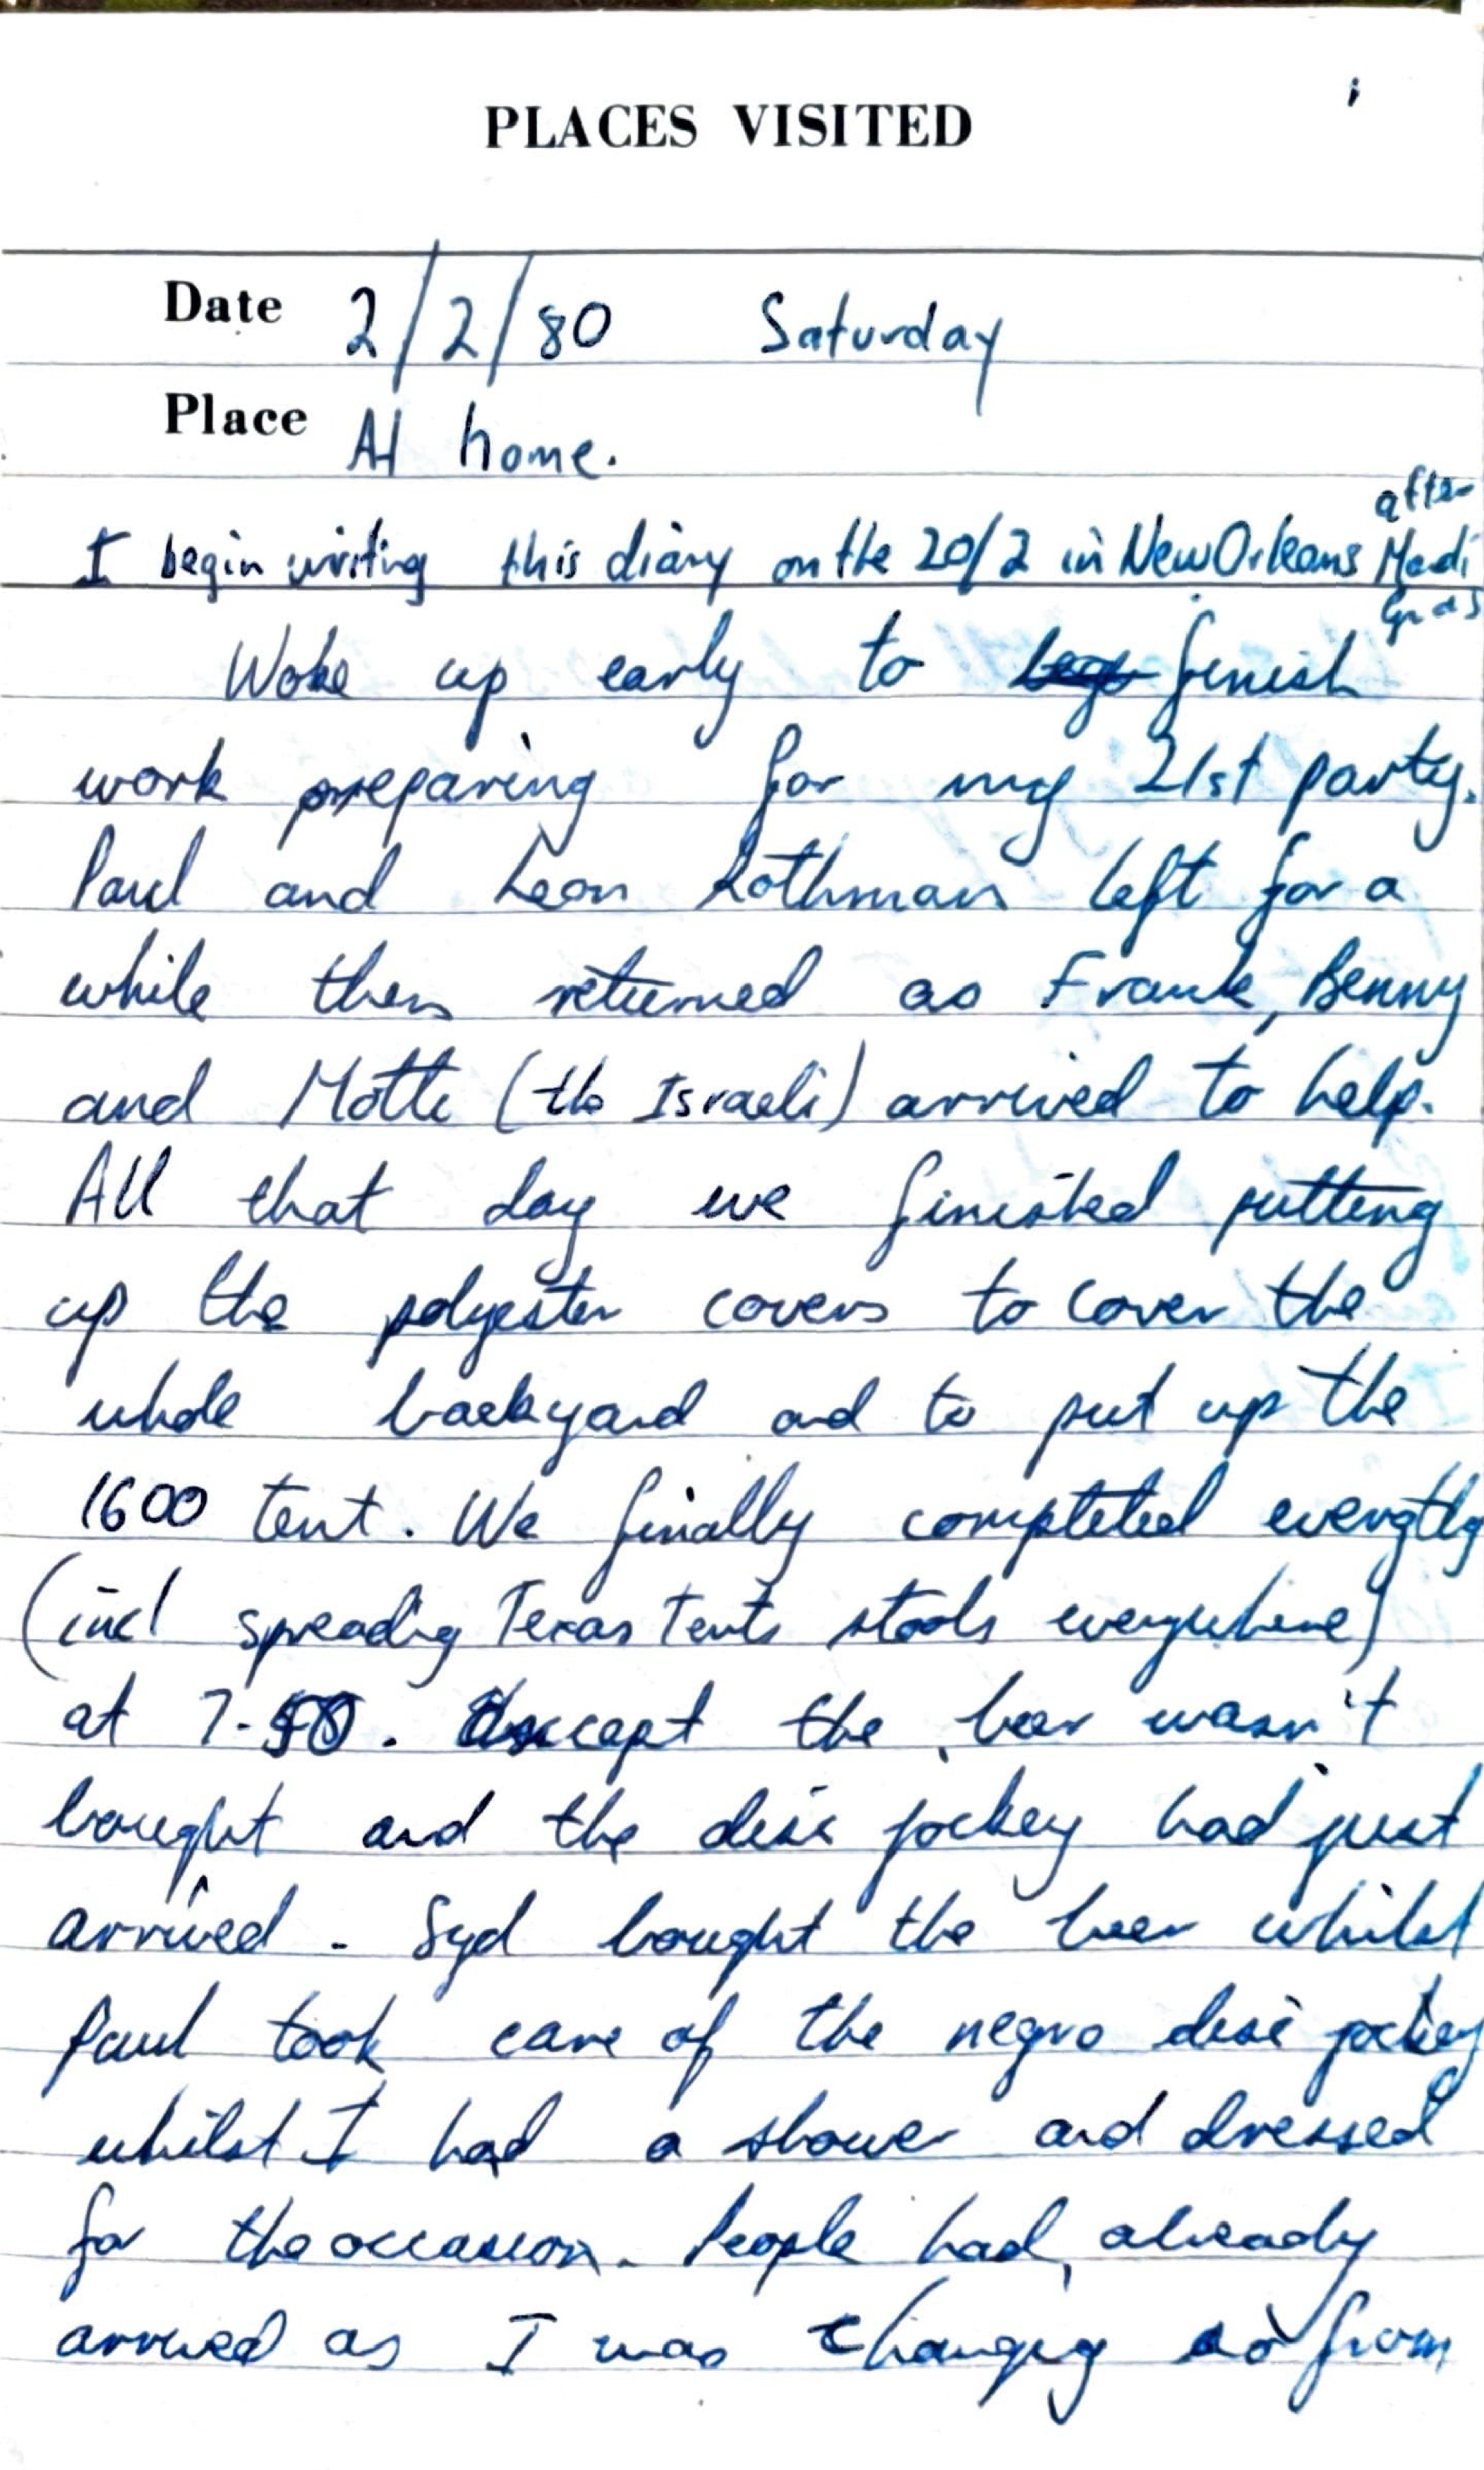 PLACES VISITED
Date 2/2/80 Saturday
Place At home.
I begin writing this diary on the 20/2 in New Orleans after Madi Gras
Woke up early to finish
work preparing for my 21st party.
Paul and Leon Rothman left for a
while then returned as Frank, Benny
and Motti (the Israeli) arrived to help.
All that day we finished putting
up the polyester covers to cover the
whole backyard and to put up the
1600 tent. We finally completed
(incl spreadig Texas Tents stools everywhere)
at 7-50. Except the beer wasn't
bought and the disc jockey had just
arrived - Syd bought the beer whilst
Paul took care of the negro disc jockey
whilst I had a shower and dressed
for the occasion. People had already
arrived as I was changig so from